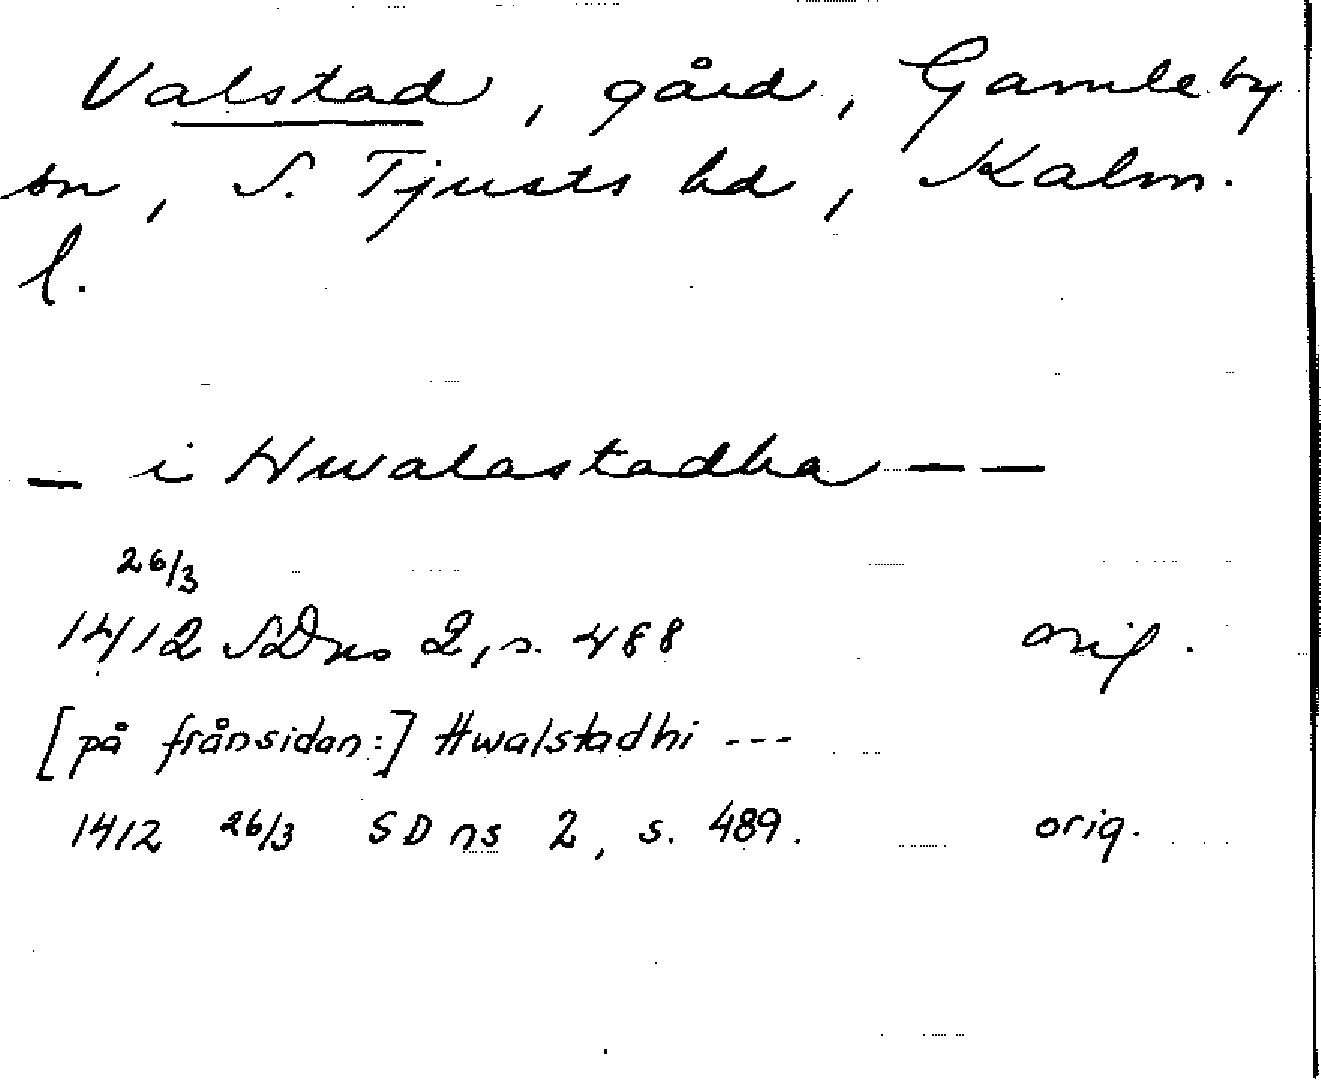 Valstad, gård, Gamleby
sn, S. Tjusts hd, Kalm.
l.
– i Hwalastadha – –
26/3
1412 SDns 2, s. 488 orig.
[på frånsidan:] Hwalstadhi ---
1412 26/3 SDns 2, s. 489. orig.